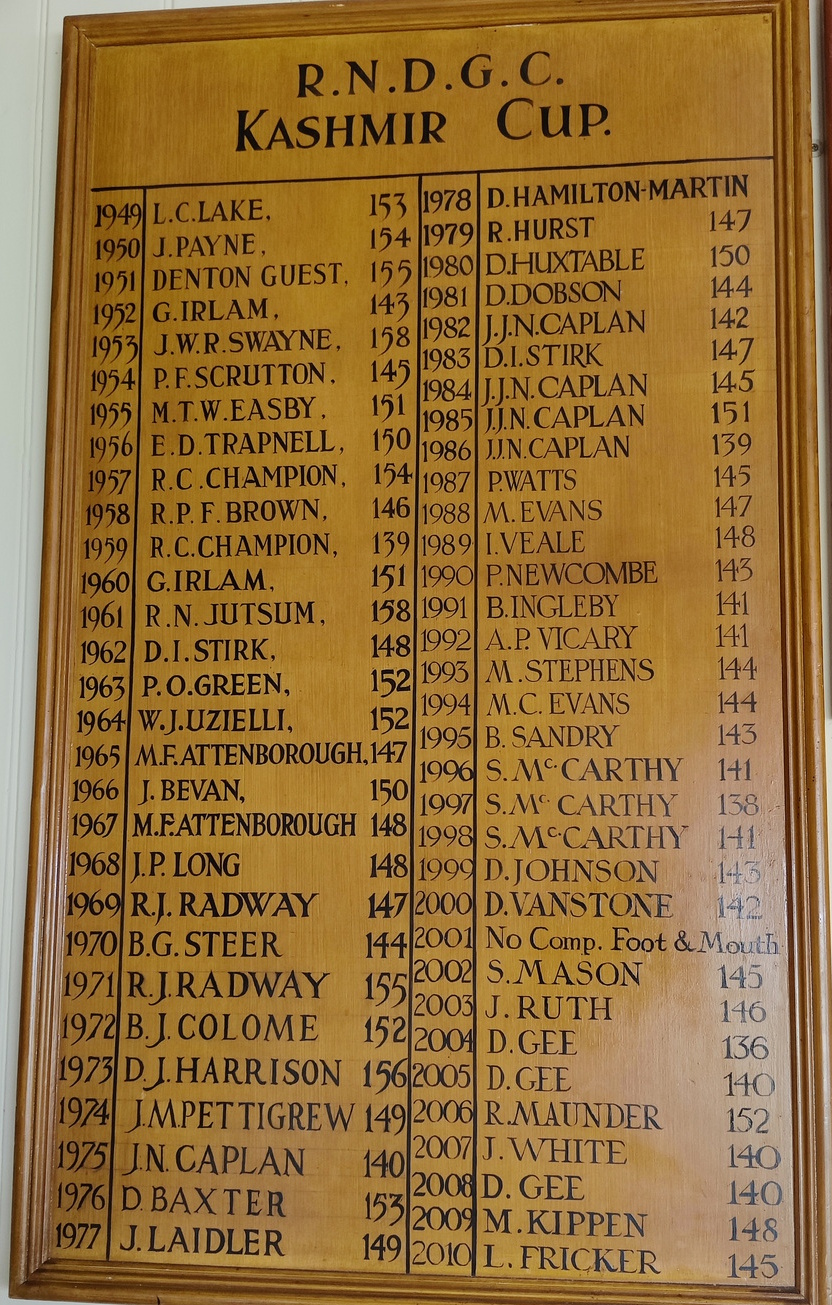 R.N.D.G.C.
KASHMIR CUP.
1949 L.C.LAKE, 153
1950 J.PAYNE, 154
1951 DENTON GUEST, 155
1952 G.IRLAM, 143
1953 J.W.R.SWAYNE, 158
1954 P.F.SCRUTTON, 145
1955 M.T.W.EASBY, 151
1956 E.D.TRAPNELL, 150
1957 R.C.CHAMPION, 154
1958 R.P.F.BROWN, 146
1959 R.C.CHAMPION, 139
1960 G.IRLAM, 151
1961 R.N.JUTSUM, 158
1962 D.I.STIRK, 148
1963 P.O.GREEN, 152
1964 W.J.UZIELLI, 152
1965 M.F.ATTENBOROUGH, 147
1966 J.BEVAN, 150
1967 M.F.ATTENBOROUGH 148
1968 J.P.LONG 148
1969 R.J.RADWAY 147
1970 B.G.STEER 144
1971 R.J.RADWAY 155
1972 B.J.COLOME 152
1973 D.J.HARRISON 156
1974 J.M.PETTIGREW 149
1975 J.N.CAPLAN 140
1976 D.BAXTER 153
1977 J.LAIDLER 149
1978 D.HAMILTON-MARTIN
1979 R.HURST 147
1980 D.HUXTABLE 150
1981 D.DOBSON 144
1982 J.J.N.CAPLAN 142
1983 D.I.STIRK 147
1984 J.J.N.CAPLAN 145
1985 J.J.N.CAPLAN 151
1986 J.J.N.CAPLAN 139
1987 P.WATTS 145
1988 M.EVANS 147
1989 I.VEALE 148
1990 P.NEWCOMBE 143
1991 B.INGLEBY 141
1992 A.P.VICARY 141
1993 M.STEPHENS 144
1994 M.C.EVANS 144
1995 B.SANDRY 143
1996 S.Mc.CARTHY 141
1997 S.Mc.CARTHY 138
1998 S.Mc.CARTHY 141
1999 D.JOHNSON 143
2000 D.VANSTONE 142
2001 No Comp. Foot & Mouth
2002 S.MASON 145
2003 J.RUTH 146
2004 D.GEE 136
2005 D.GEE 140
2006 R.MAUNDER 152
2007 J.WHITE 140
2008 D.GEE 140
2009 M.KIPPEN 148
2010 L.FRICKER 145